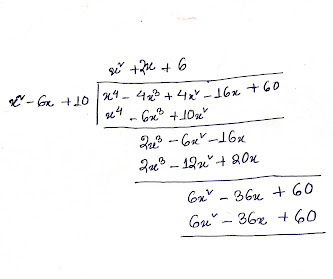 x² + 2x + 6
x² - 6x + 10 | x⁴ - 4x³ + 4x² - 16x + 60
x⁴ - 6x³ + 10x²
2x³ - 6x² - 16x
2x³ - 12x² + 20x
6x² - 36x + 60
6x² - 36x + 60